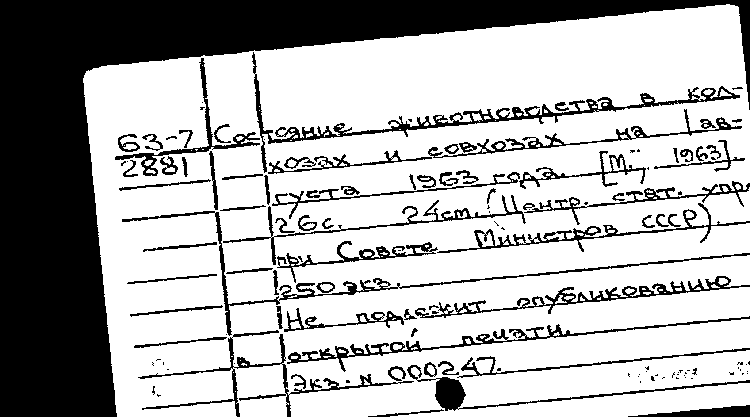 63-7
2881
Состояние животноводства в кол-
хозах и совхозах на 1 ав-
густа 1963 года. [М., 1963].
26с. 24см. (Центр. стат. упр.
при Совете Министров СССР).
250 экз.
Не подлежит опубликованию
в открытой печати.
Экз. N 000247.